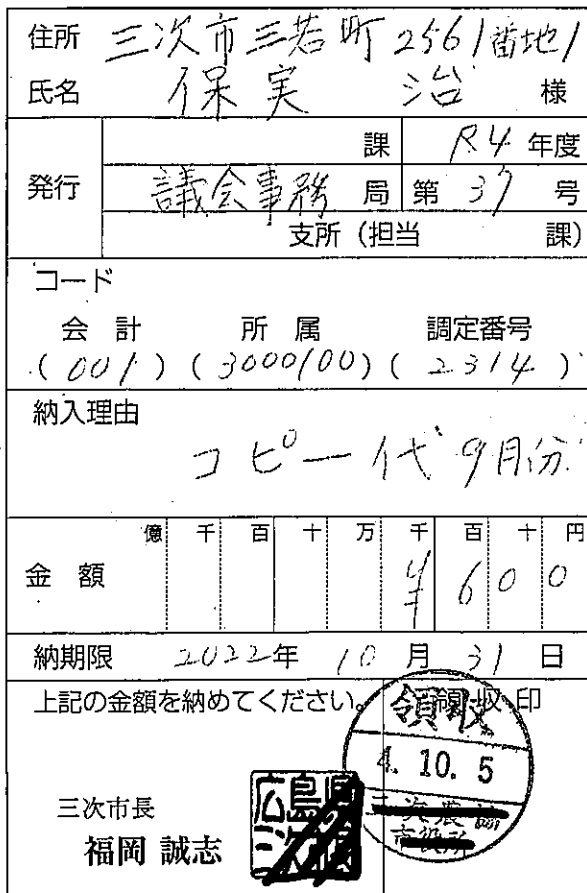 住所 三次市三若町2561番地1
氏名 保実 治 様
発行
課 R4年度
議会事務局 第37号
支所（担当 課）
コード
会計 所属 調定番号
(001) (3000100) (2314)
納入理由
コピー代9月分
億 千 百 十 万 千 百 十 円
金額 ¥600
納期限 2022年10月31日
上記の金額を納めてください。 領収印
領収
4.10.5
三次市長
福岡 誠志